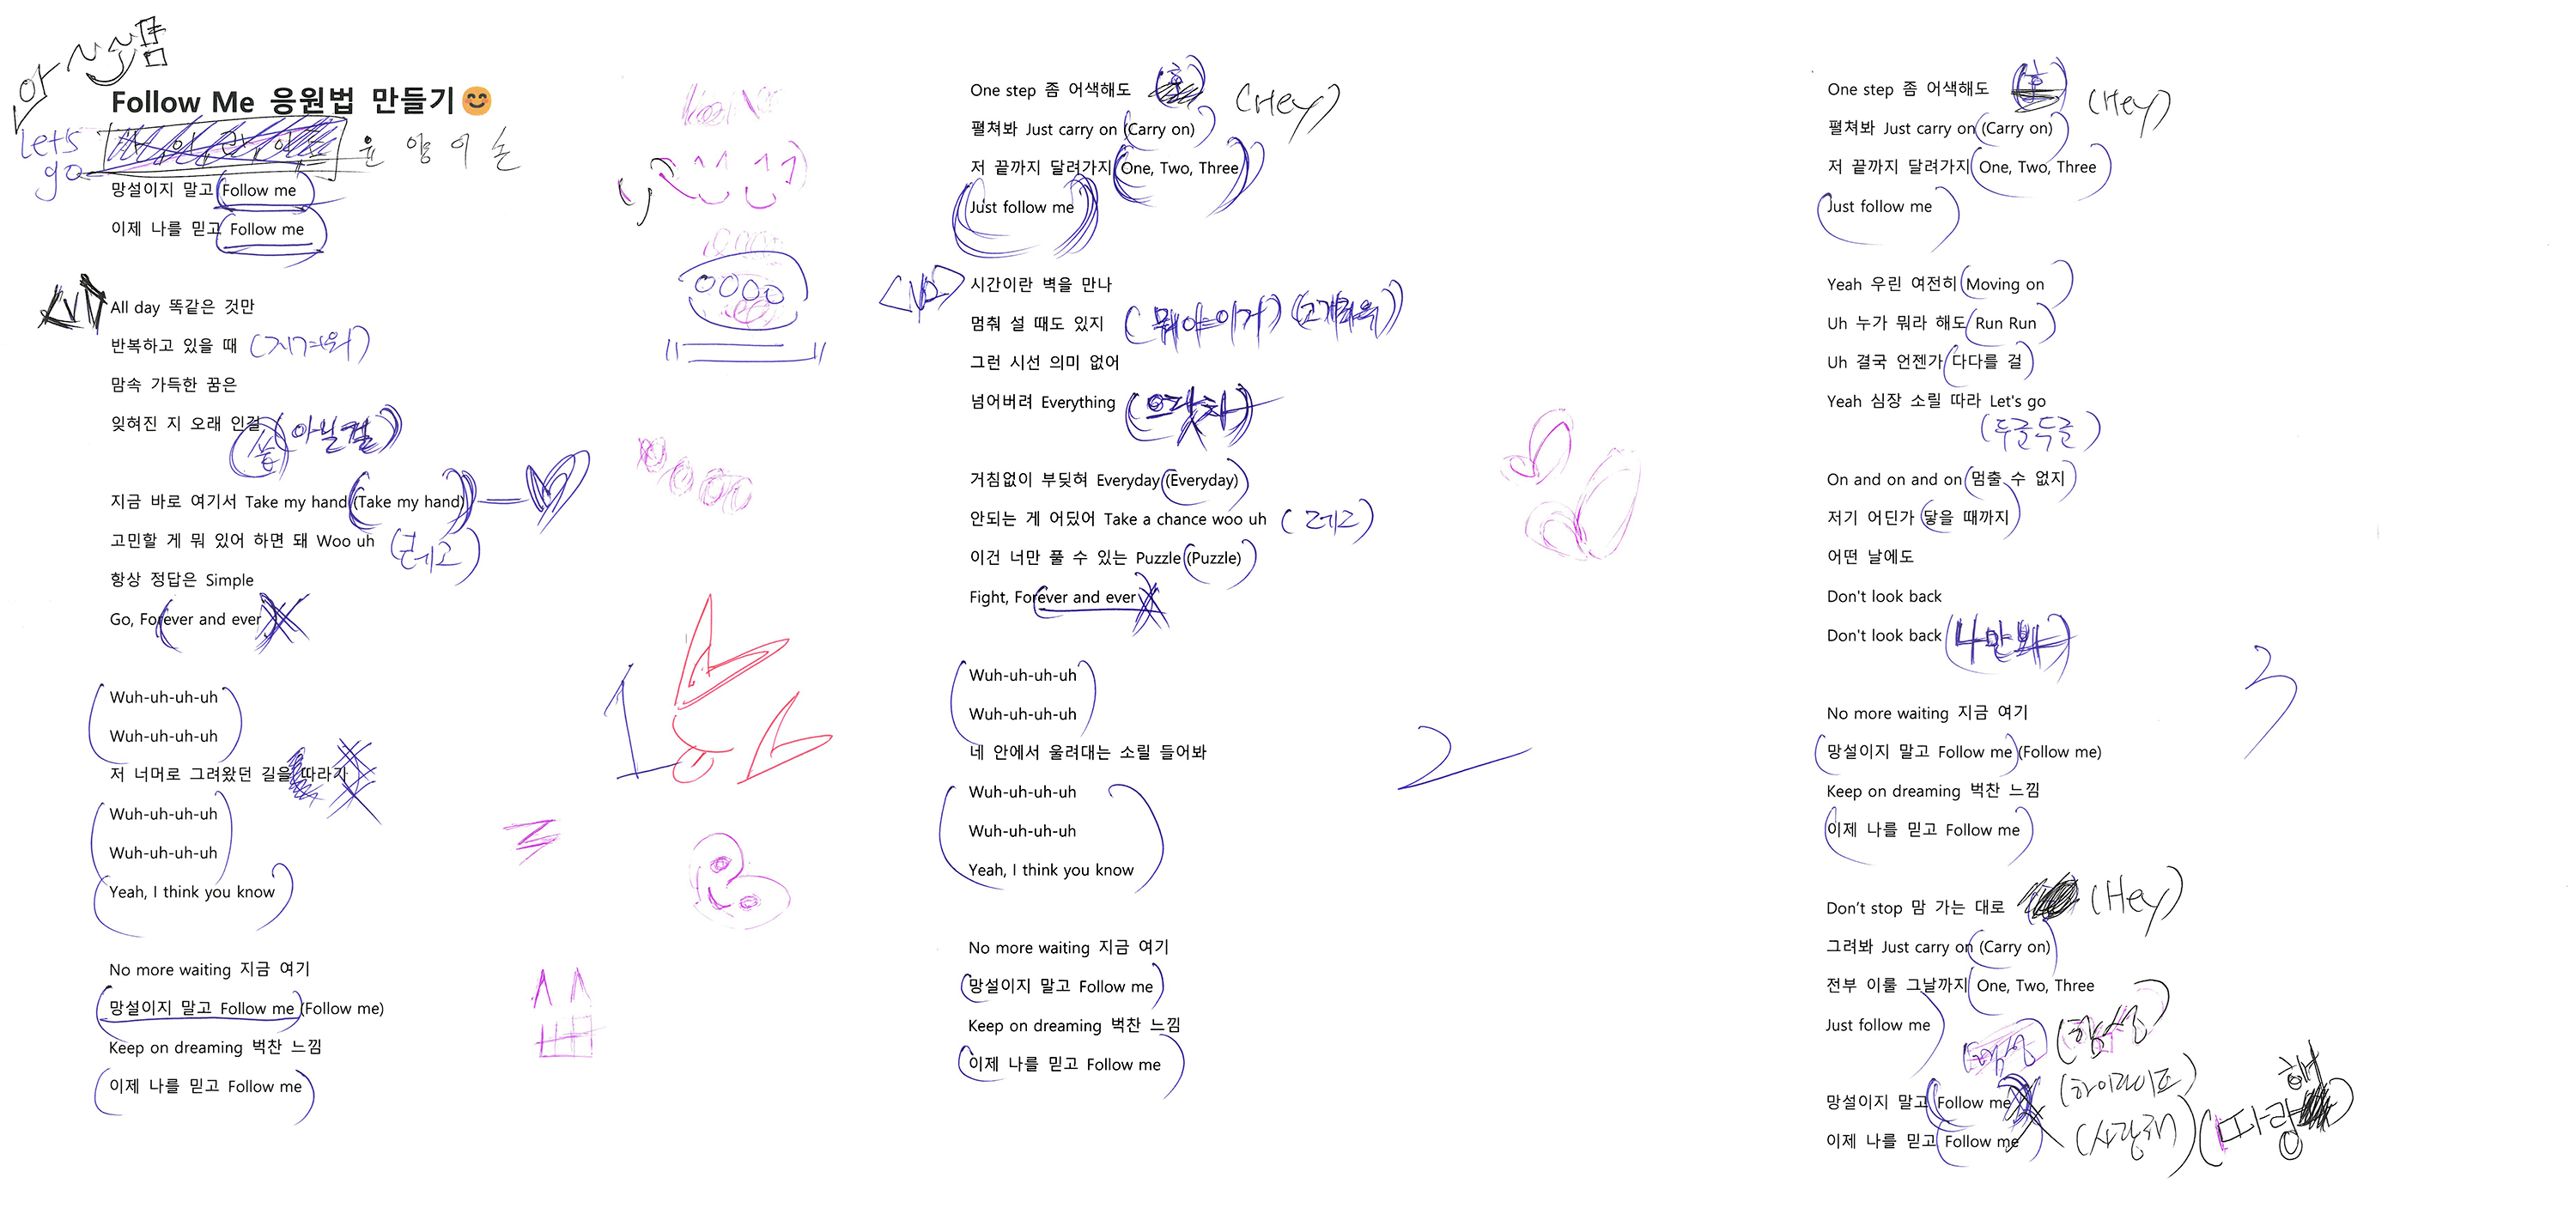 아~싸뽐
Follow Me 응원법 만들기😊
Let's go
윤 양 이 손
망설이지 말고 Follow me
이제 나를 믿고 Follow me
<V1>
All day 똑같은 것만
반복하고 있을 때 (지겨워)
맘속 가득한 꿈은
잊혀진 지 오래 인걸 (아닐걸)
지금 바로 여기서 Take my hand (Take my hand)
고민할 게 뭐 있어 하면 돼 Woo uh
항상 정답은 Simple
Go, Forever and ever
Wuh-uh-uh-uh
Wuh-uh-uh-uh
저 너머로 그려왔던 길을 따라가
Wuh-uh-uh-uh
Wuh-uh-uh-uh
Yeah, I think you know
No more waiting 지금 여기
망설이지 말고 Follow me (Follow me)
Keep on dreaming 벅찬 느낌
이제 나를 믿고 Follow me
1
One step 좀 어색해도 (Hey)
펼쳐봐 Just carry on (Carry on)
저 끝까지 달려가지 One, Two, Three
Just follow me
<V2>
시간이란 벽을 만나
멈춰 설 때도 있지 (뭐야이거)
그런 시선 의미 없어
넘어버려 Everything (으랏차)
거침없이 부딪혀 Everyday (Everyday)
안되는 게 어딨어 Take a chance woo uh (렛고)
이건 너만 풀 수 있는 Puzzle (Puzzle)
Fight, Forever and ever
Wuh-uh-uh-uh
Wuh-uh-uh-uh
네 안에서 울려대는 소릴 들어봐
Wuh-uh-uh-uh
Wuh-uh-uh-uh
Yeah, I think you know
No more waiting 지금 여기
망설이지 말고 Follow me
Keep on dreaming 벅찬 느낌
이제 나를 믿고 Follow me
2
One step 좀 어색해도 (Hey)
펼쳐봐 Just carry on (Carry on)
저 끝까지 달려가지 One, Two, Three
Just follow me
Yeah 우린 여전히 Moving on
Uh 누가 뭐라 해도 Run Run
Uh 결국 언젠가 다다를 걸
Yeah 심장 소릴 따라 Let's go
(두글두글)
On and on and on 멈출 수 없지
저기 어딘가 닿을 때까지
어떤 날에도
Don't look back
Don't look back (나만봐)
No more waiting 지금 여기
망설이지 말고 Follow me (Follow me)
Keep on dreaming 벅찬 느낌
이제 나를 믿고 Follow me
Don't stop 맘 가는 대로 (Hey)
그려봐 Just carry on (Carry on)
전부 이룰 그날까지 One, Two, Three
Just follow me
(함성) (함성)
망설이지 말고 Follow me (하이라이프)
이제 나를 믿고 Follow me (사랑해) (따랑해)
3